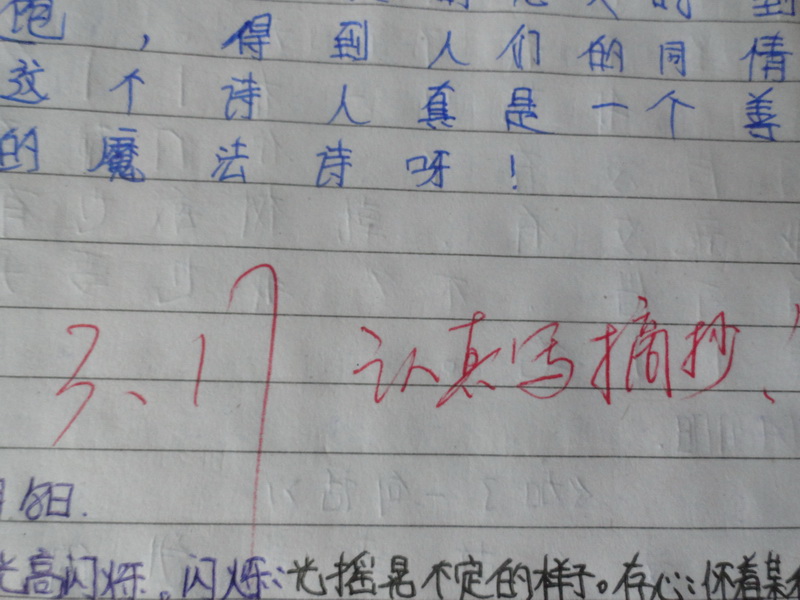 饱，得到人们的同情
这个诗人真是一个善
的魔法诗呀！
3、17 认真写摘抄！
月8日.
光高闪烁。闪烁：光摇晃不定的样子。存心：怀着某